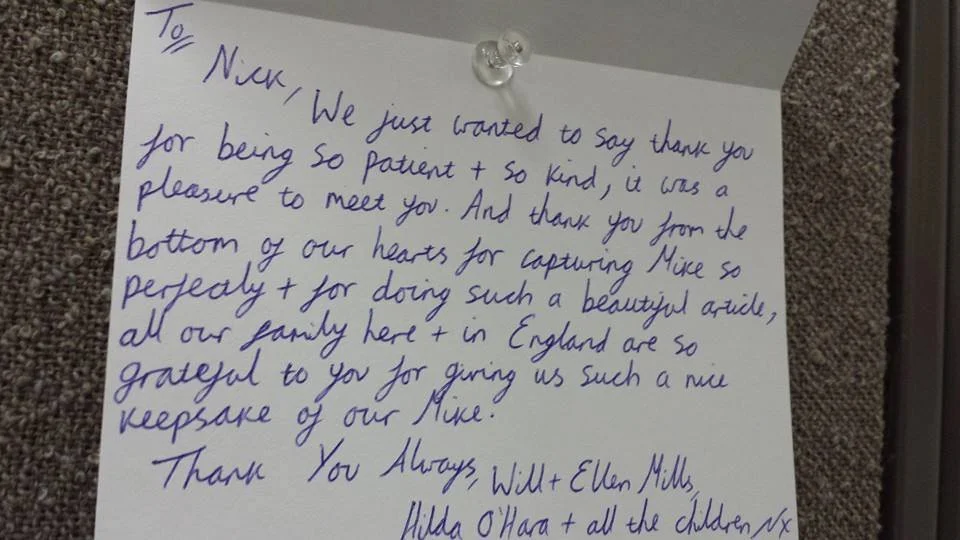 To
Nick,
We just wanted to say thank you
for being so patient + so kind, it was a
pleasure to meet you. And thank you from the
bottom of our hearts for capturing Mike so
perfectly + for doing such a beautiful article,
all our family here + in England are so
grateful to you for giving us such a nice
keepsake of our Mike.
Thank You Always, Will + Ellen Mills,
Hilda O'Hara + all the children